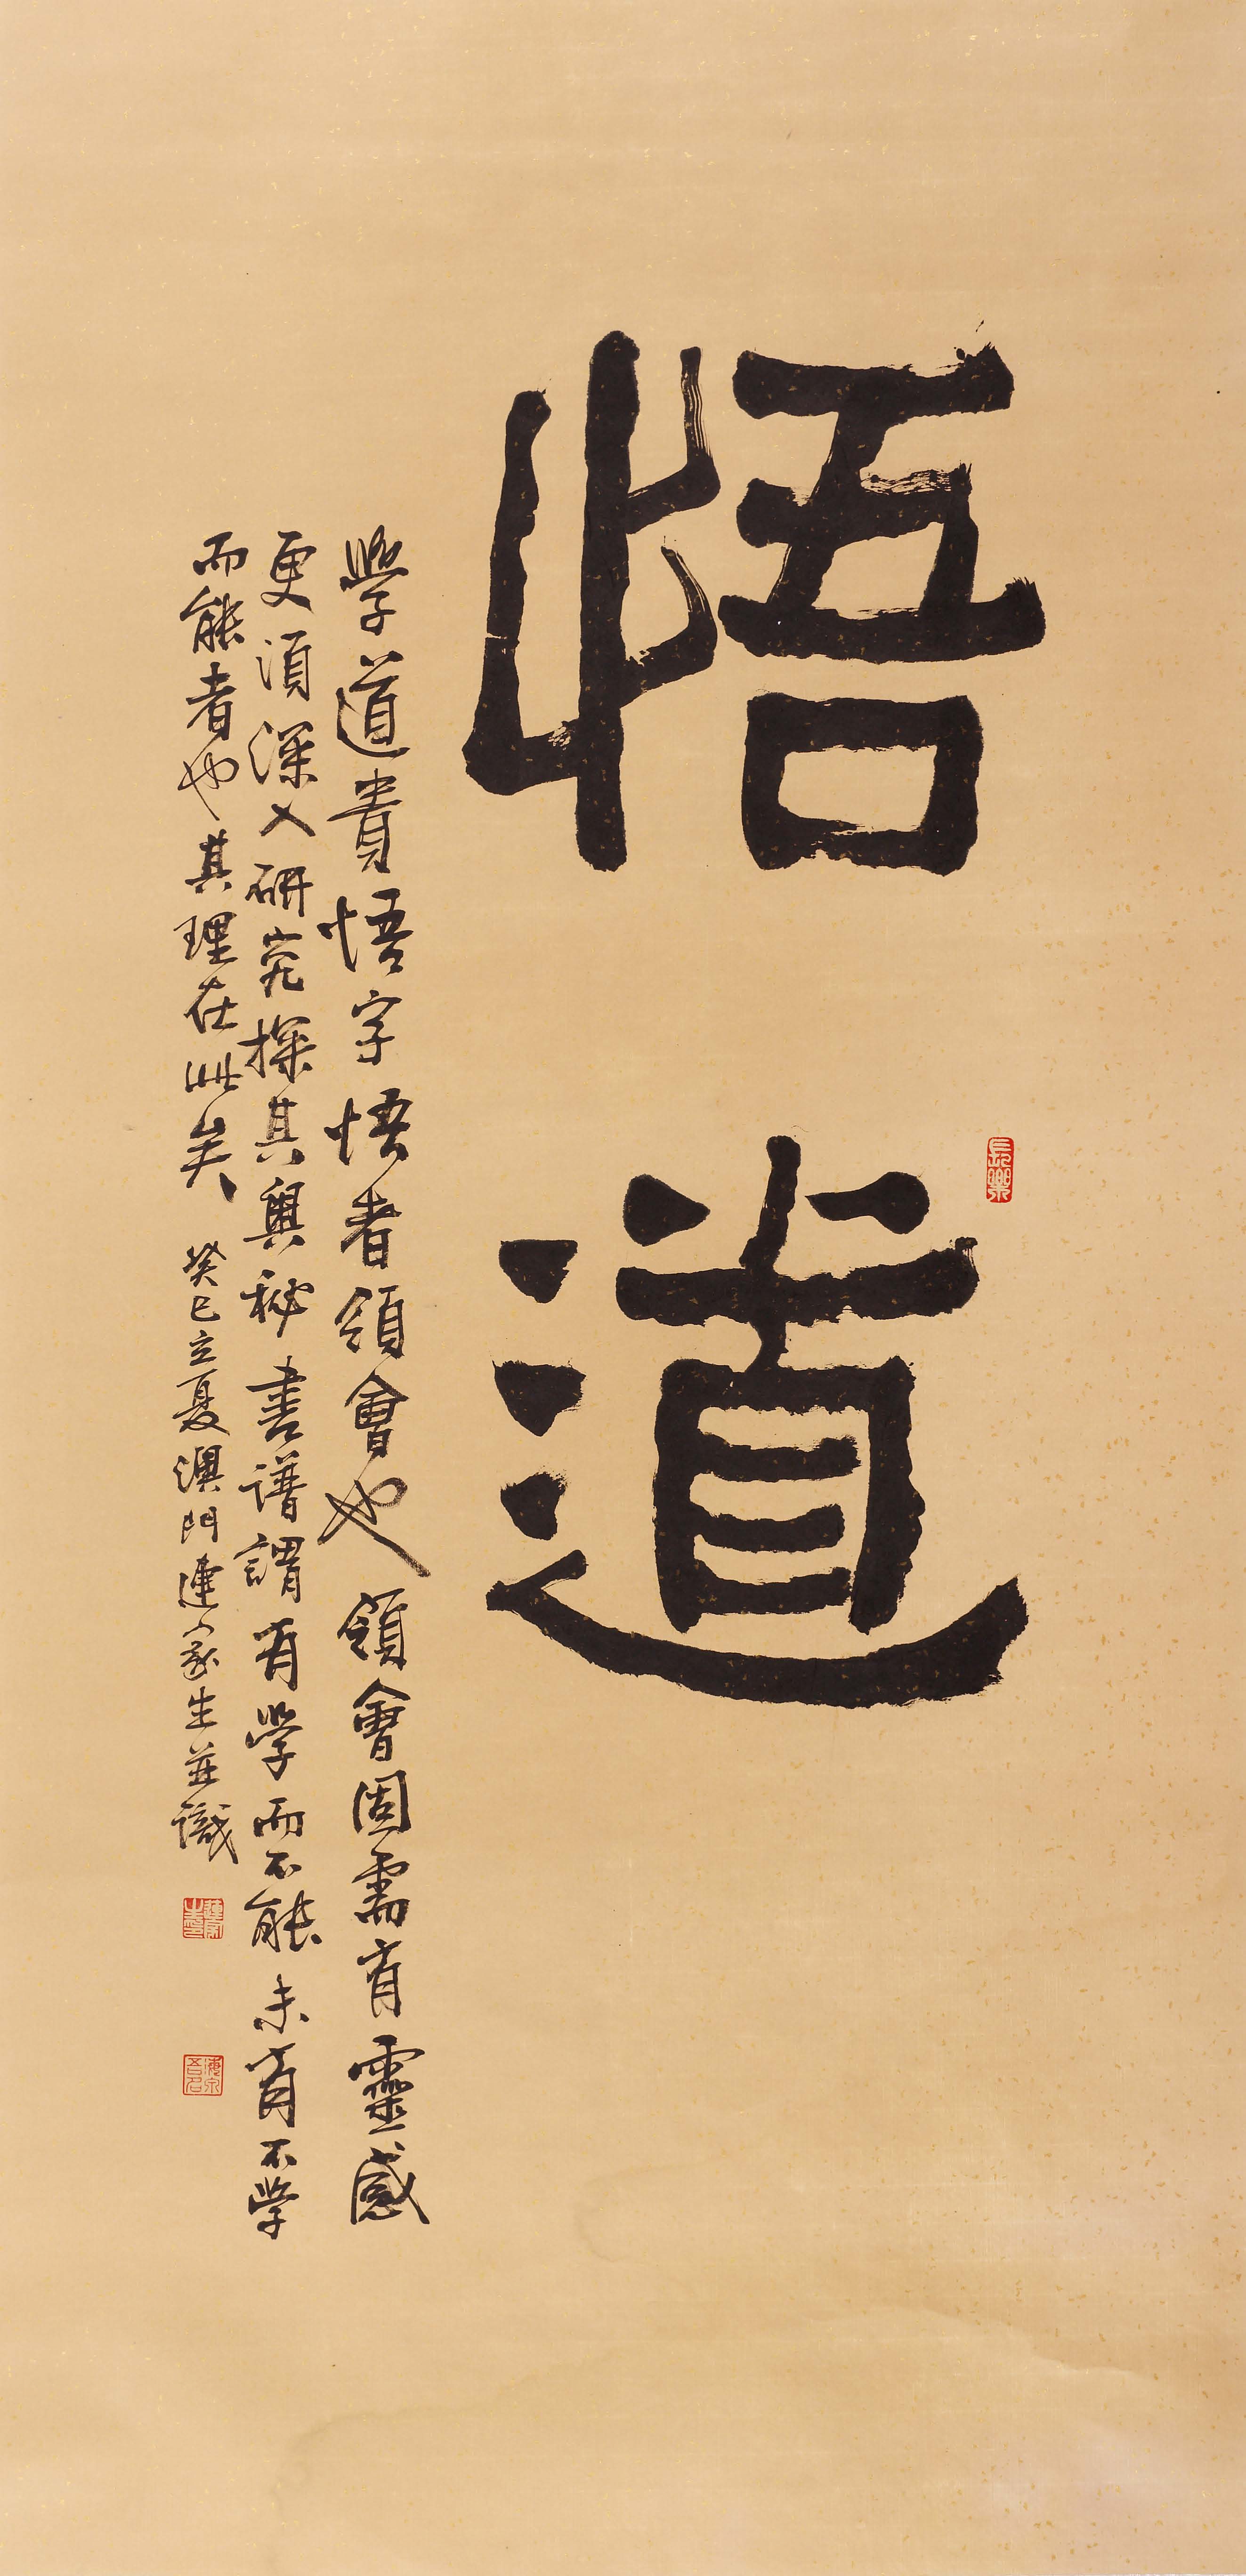 悟道
長樂
學道貴悟字悟者領會也領會固需有靈感
更須深入研究探其奥秘書譜謂有學而不能未有不學
而能者也其理在此矣
癸巳立夏澳門連家生並識
連家生